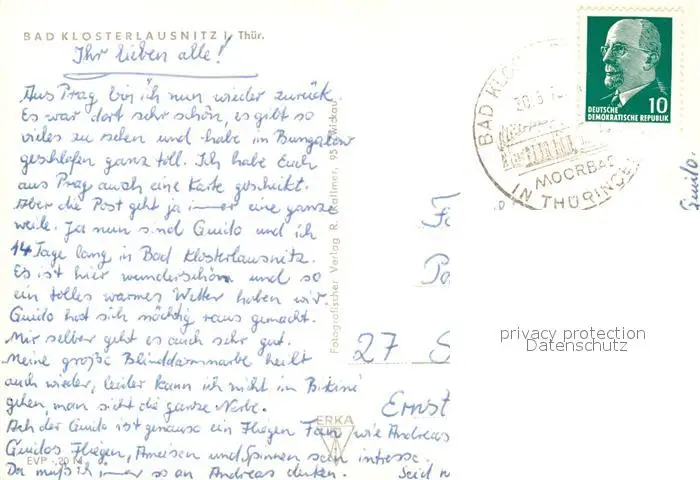 BAD KLOSTERLAUSNITZ i. Thür.
Ihr lieben alle!
Aus Prag bin ich nun wieder zurück
Es war dort sehr schön, es gibt so
vieles zu sehen und habe im Bungalow
geschlafen ganz toll. Ich habe Euch
aus Prag auch eine Karte geschickt.
Aber die Post geht ja immer eine ganze
weile. Ja nun sind Guido und ich
14 Tage lang in Bad Klosterlausnitz.
Es ist hier wunderschön und so
ein tolles warmes Wetter haben wir
Guido hat sich mächtig raus gemacht.
Mir selber geht es auch sehr gut.
Meine große Blinddarmnarbe heilt
auch wieder, leider kann ich nicht im Bikini
gehen, man sieht die ganze Narbe.
Ach der Guido ist genauso ein Fliegen Fan, wie Andreas
Guidos Fliegen, Ameisen und Spinnen sein intresse.
Da muß ich immer so an Andreas denken. Seid
EVP -,20 M
Fotografischer Verlag R. Kallmer, 95 Zwickau
ERKA
BAD KLOS
30.6.7
MOORBAD
IN THÜRINGEN
DEUTSCHE
DEMOKRATISCHE REPUBLIK
10
Guido.
F
27
Ernst
privacy protection
Datenschutz